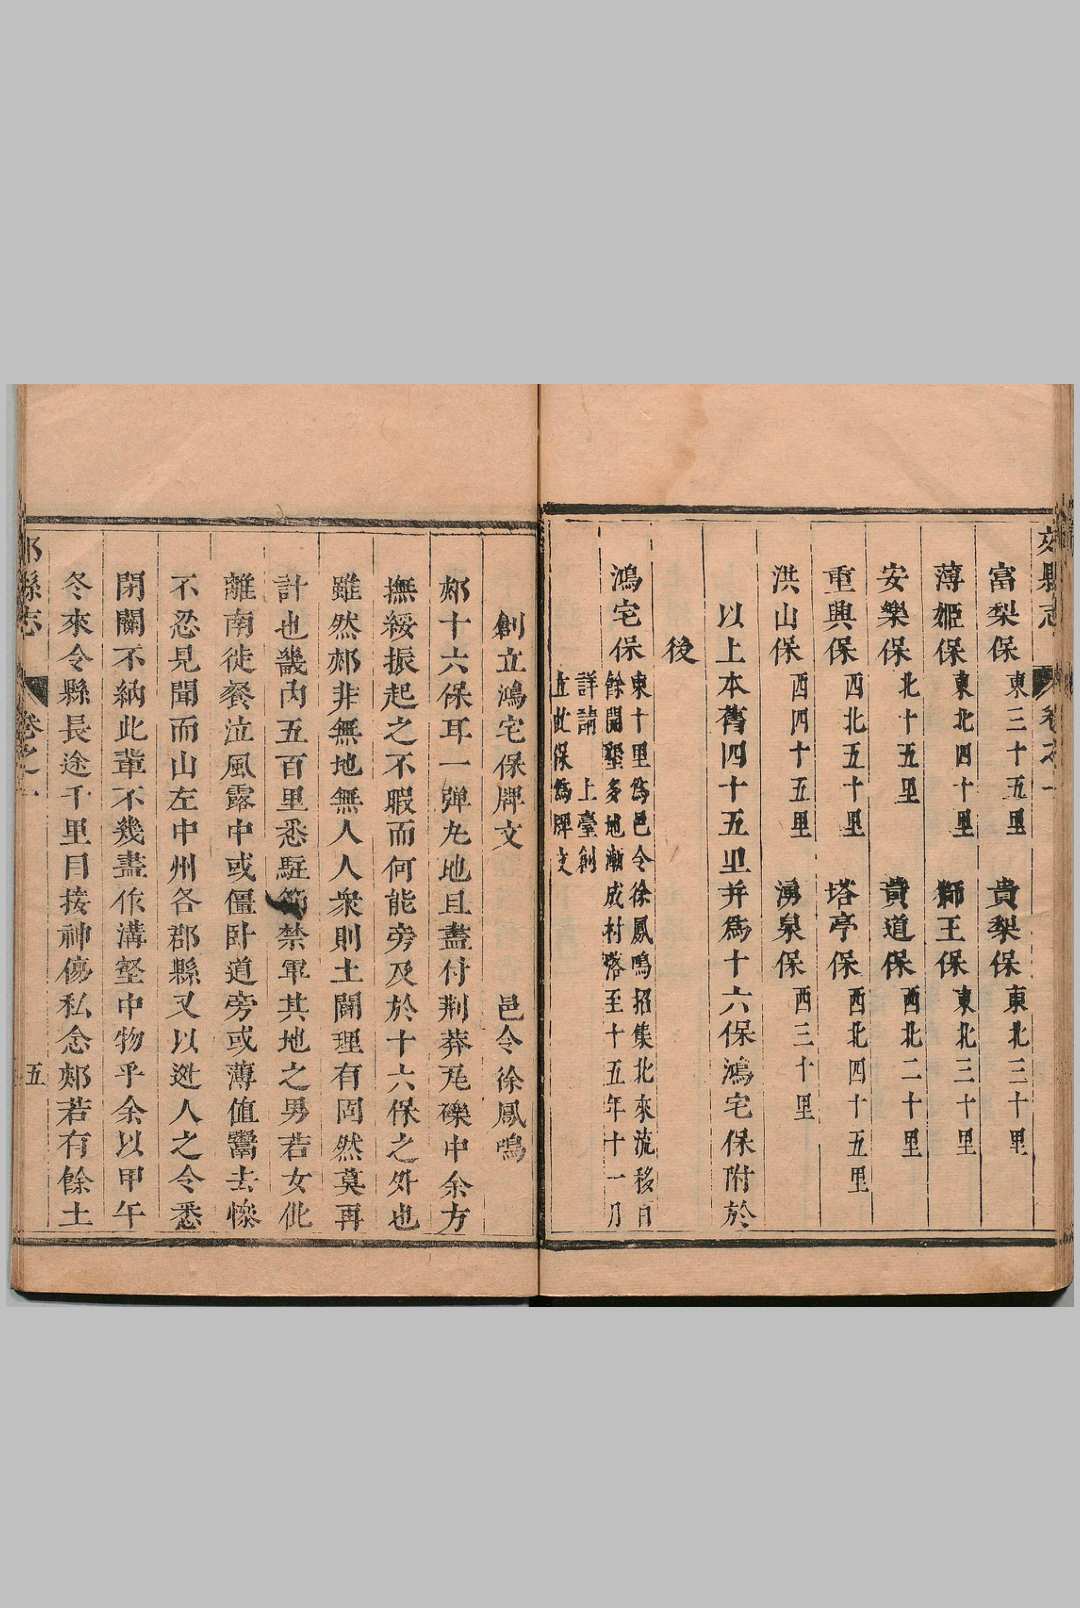 郟縣志 卷之一
富梨保 東三十五里 貴梨保 東北三十里
薄姬保 東北四十里 獅王保 東北三十里
安樂保 北十五里 黃道保 西北二十里
重興保 西北五十里 塔亭保 西北四十五里
洪山保 西四十五里 湧泉保 西三十里
以上本舊四十五里并爲十六保鴻宅保附於
後
鴻宅保 東十里爲邑令徐鳳鳴招集北來流移百
餘開墾多地漸成村落至十五年十一月
詳請 上臺創
立此保爲牌文
創立鴻宅保牌文 邑令徐鳳鳴
郟十六保耳一彈丸地且盡付荆莽瓦礫中余方
撫綏振起之不暇而何能旁及於十六保之外也
雖然郟非無地無人人衆則土闢理有固然莫再
計也畿內五百里悉駐 禁軍其地之男若女仳
離南徙餐泣風露中或僵卧道旁或薄值鬻去慘
不忍見聞而山左中州各郡縣又以逃人之令悉
閉關不納此輩不幾盡作溝壑中物乎余以甲午
冬來令縣長途千里目接神傷私念郟若有餘土
郟縣志 卷之一 五